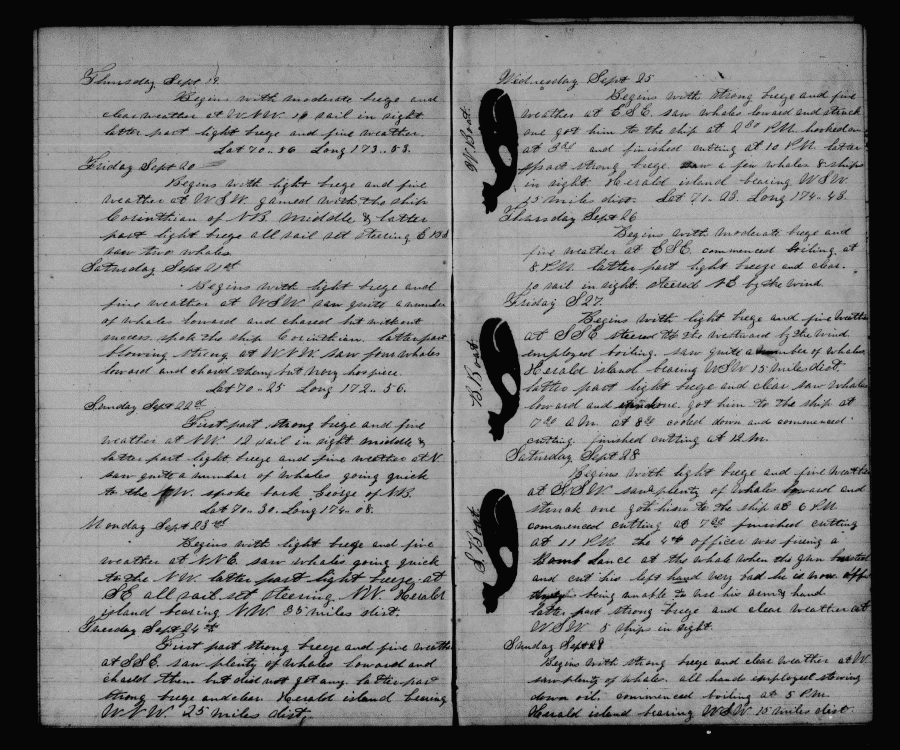 Thursday Sept 19
Begins with moderate breze and
clear weather at W.N.W. 10 sail in sight
latter part light breze and fine weather.
Lat 70..56 Long 173..03.
Friday Sept 20
Begins with light breze and fine
weather at W.S.W. gamed with the ship
Corinthian of N.B. middle & latter
part light breze all sail set steering E
saw two whales.
Saturday Sept 21st
Begins with light breze and
fine weather at W.S.W. saw quite a number
of whales loward and chased but without
sucess. spoke the ship Corinthian. latter part
blowing strong at W.N.W. saw few whales
loward and chased them, but
Lat 70..25 Long 172..56.
Sunday Sept 22d
First part strong breze and fine
weather at N.W. 12 sail in sight middle &
latter part light breze and fine weather at N.
saw quite a number of whales going quick
to the N.W. spoke bark George of N.B.
Lat 70..30. Long 174..08.
Monday Sept 23rd
Begins with light breze and fine
weather at N.N.E. saw whales going quick
to the N.W. latter part light breze at
SE all sail set steering N.W. Herald
island bearing N.W. 35 miles dist.
Tuesday Sept 24th
First part strong breze and fine weather
at S.S.E. saw plenty of whales loward and
chased them but did not get any. latter part
strong breze and clear. Herald island bearing
W.N.W. 25 miles dist.
Wednesday Sept 25
Begins with strong breze and fine
W. Boat
weather at E.S.E. saw whales loward and struck
one got him to the ship at 2 30 P.M. hooked on
at 3 and finished cutting at 10 P.M. latter
part strong breze. saw a few whales 8 ships
in sight. Herald island bearing W.S.W.
25 miles dist. Lat 71..23. Long 174..43.
Thursday Sept 26
Begins with moderate breze and
fine weather at E.S.E. commenced boiling at
8 P.M. latter part light breeze and clear.
10 sail in sight. steered N.E. by the wind.
Friday S 27.
Begins with light breze and fine weather
B. Boat
at S.S.E. steered to the westward by the wind.
employed boiling. saw quite a number of whales
Herald island bearing W.S.W. 15 miles dist.
latter part light breze and clear saw whales
loward and struck one. got him to the ship at
7 A.M. at 8 cooled down and commenced
cutting. finished cutting at 12 M.
Saturday Sept 28
Begins with light breze and fine weather
S. Boat
at S.S.W. saw plenty of whales loward and
struck one got him to the ship at 6 P.M.
commenced cutting at 7 finished cutting
at 11 P.M. the 4th officer was fireing a
Bomb lance at the whale when the gun bursted
and cut his left hand very bad he is now off
duty being unable to use his arm & hand
latter part strong breze and clear weather at
W.S.W. 5 ships in sight.
Sunday Sept 29
Begins with strong breze and clear weather at W.
saw plenty of whales. all hands employed stowing
down oil. commenced boiling at 5 P.M.
Herald island bearing W.S.W. 15 miles dist.